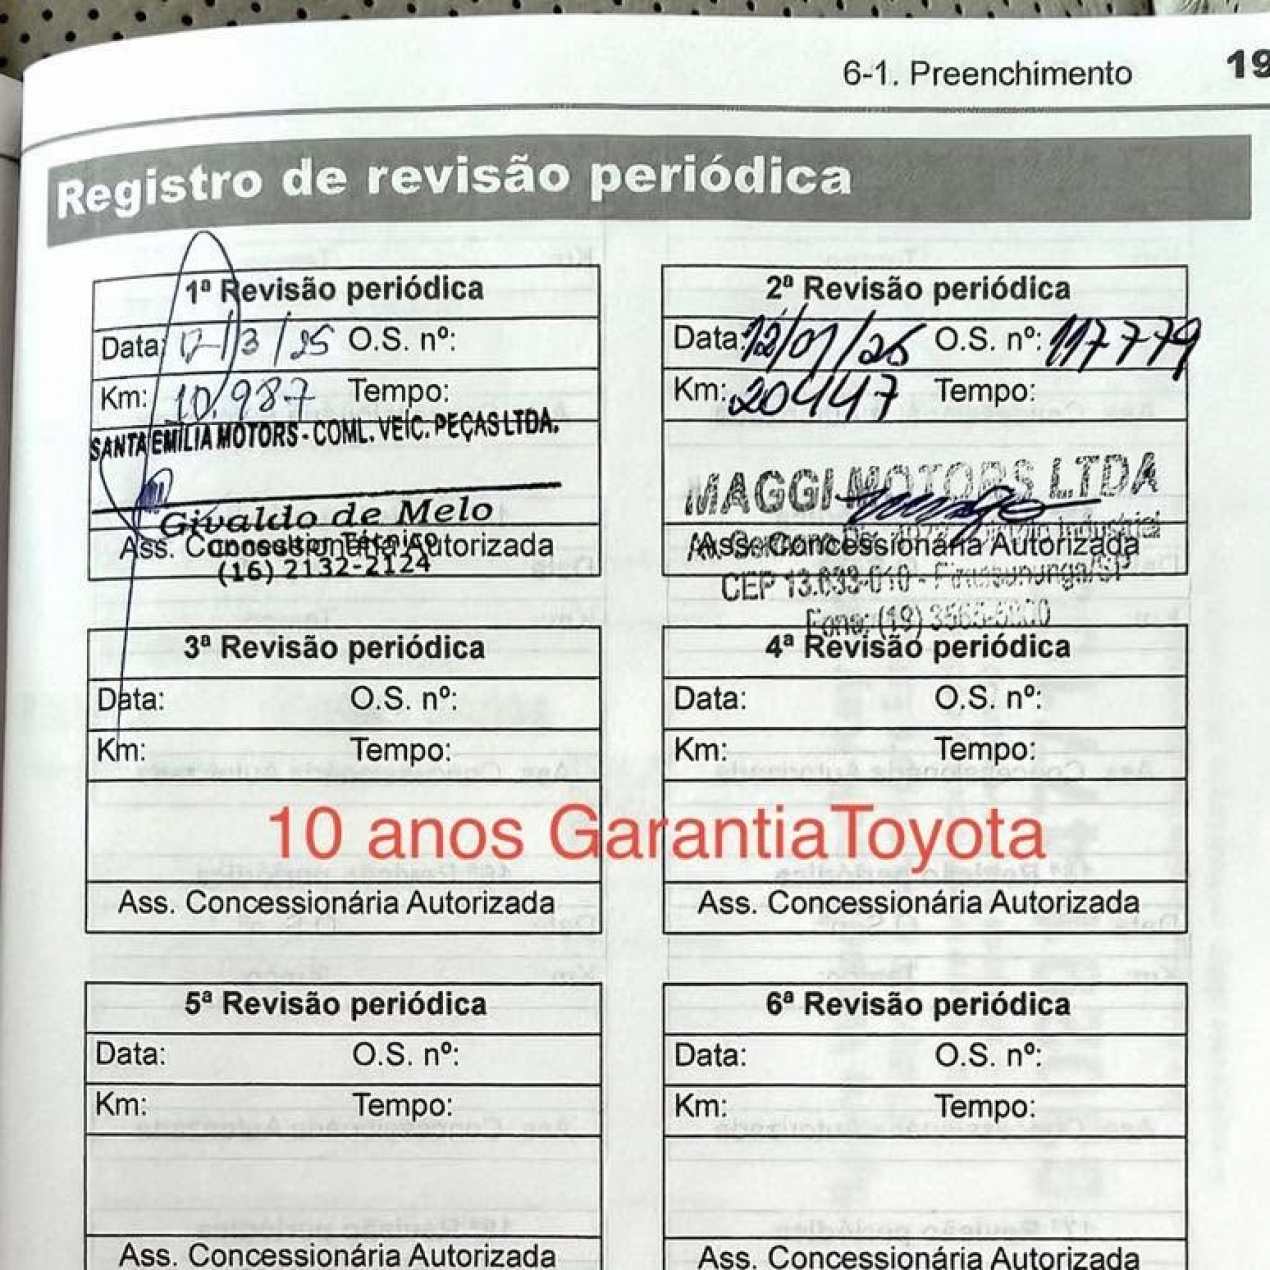 6-1. Preenchimento 19
Registro de revisão periódica
1ª Revisão periódica
Data: 17/3/25 O.S. nº:
Km: 10.987 Tempo:
SANTA EMÍLIA MOTORS - COML. VEÍC. PEÇAS LTDA.
Givaldo de Melo
Consultor Técnico
Ass. Concessionária Autorizada
(16) 2132-2124
2ª Revisão periódica
Data: 12/01/26 O.S. nº: 117779
Km: 20447 Tempo:
MAGGI MOTORS LTDA
Industrial
Ass. Concessionária Autorizada
CEP 13.633-010 - Pirassununga/SP
Fone: (19)
3ª Revisão periódica
Data: O.S. nº:
Km: Tempo:
Ass. Concessionária Autorizada
4ª Revisão periódica
Data: O.S. nº:
Km: Tempo:
Ass. Concessionária Autorizada
10 anos GarantiaToyota
5ª Revisão periódica
Data: O.S. nº:
Km: Tempo:
Ass. Concessionária Autorizada
6ª Revisão periódica
Data: O.S. nº:
Km: Tempo:
Ass. Concessionária Autorizada